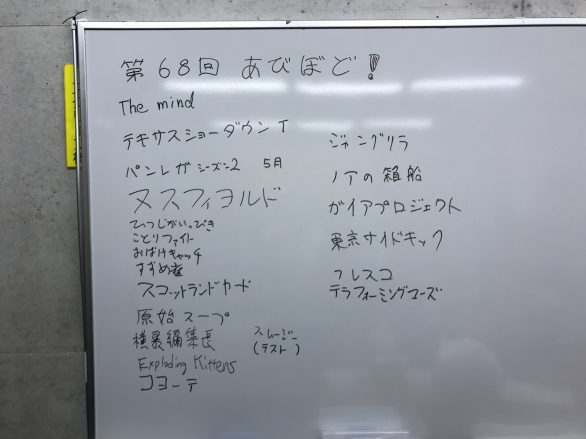 第68回 あびぼど!
The mind
テキサスショーダウン T
パンレガ シーズン2 5月
ヌスフィヨルド
ひつじがいっぴき
ことりファイト
おばけキャッチ
すずめ雀
スコットランドヤード
原始スープ
横暴編集長
Exploding Kittens
コヨーテ
スムージー
(テスト)
ジャングリラ
ノアの箱船
ガイアプロジェクト
東京サイドキック
フレスコ
テラフォーミングマーズ